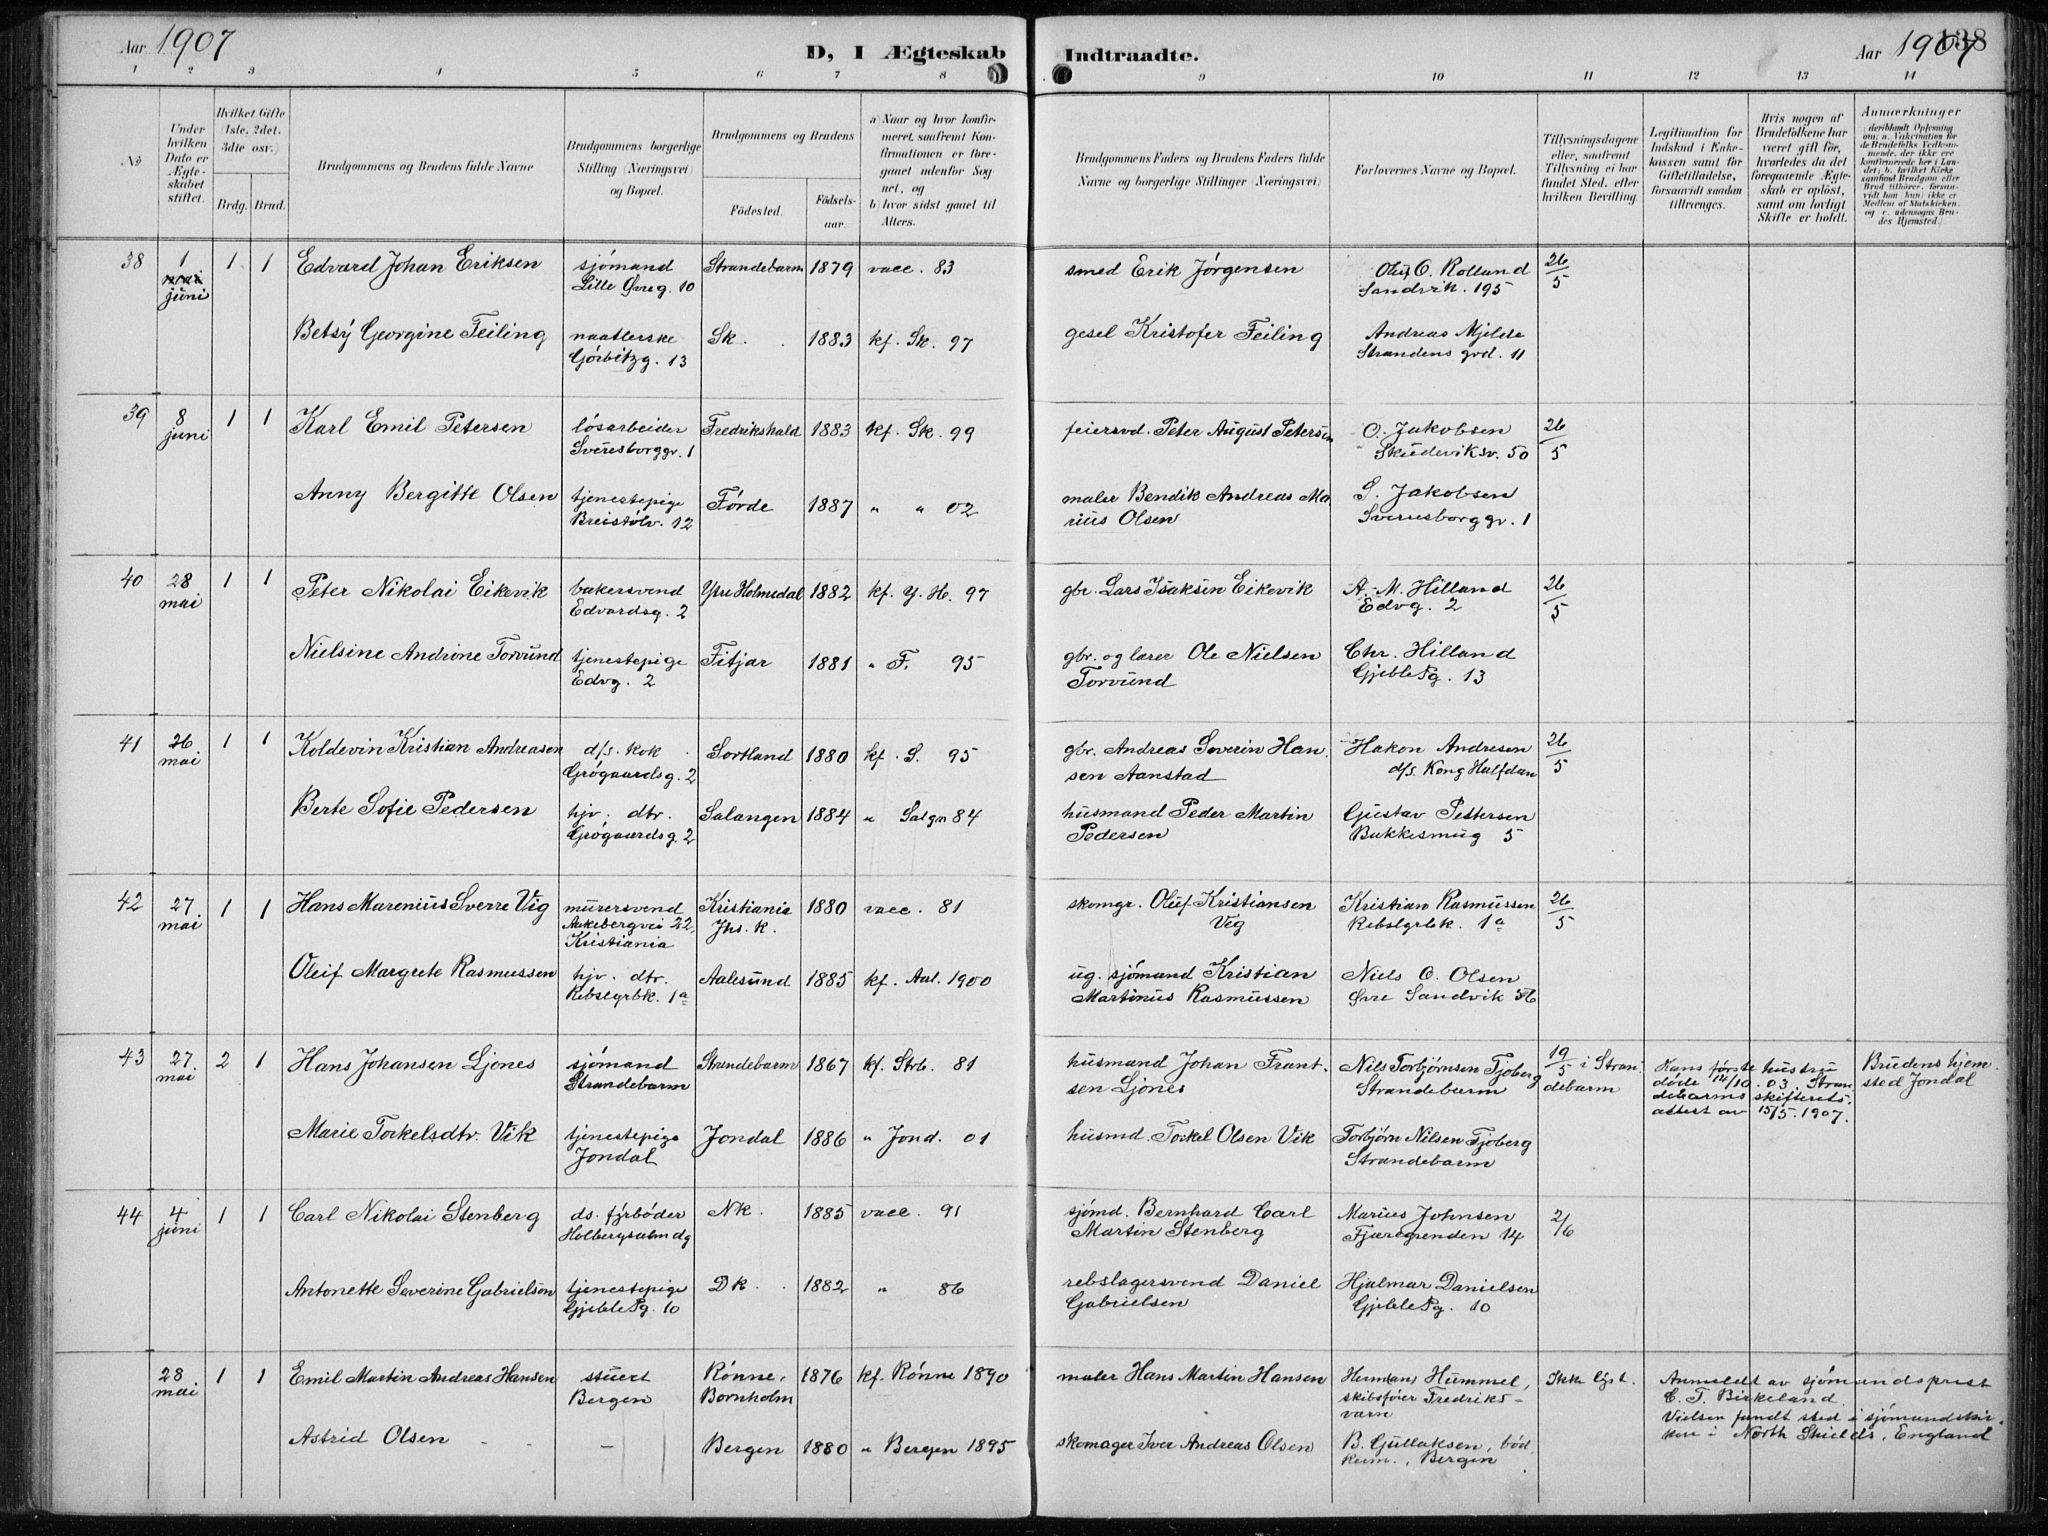 Aar 1907
D, I Ægteskab Indtraadte.
Aar 1907
138
1 2 3 4 5 6 7 8 9 10 11 12 13 14
No
Under hvilken Dato er Ægteskabet stiftet.
Hvilket Gifte (1ste, 2det, 3dte osv.)
Brdg. Brud.
Brudgommens og Brudens fulde Navne
Brudgommens borgerlige Stilling (Næringsvei) og Bopæl.
Brudgommens og Brudens
Födested. Födselsaar.
a) Naar og hvor konfirmeret, saafremt Konfirmationen er foregaaet udenfor Sognet, og
b) hvor sidst gaaet til Alters.
Brudgommens Faders og Brudens Faders fulde Navne og borgerlige Stillinger (Næringsvei)
Forlovernes Navne og Bopæl.
Tillysningsdagene eller, saafremt Tillysning ei har fundet Sted, efter hvilken Bevilling.
Legitimation for Indskud i Enkekassen samt for Giftetilladelse, forsaavidt saadan tiltrænges.
Hvis nogen af Brudefolkene har været gift før, hvorledes da det foregaaende Ægteskab er oplöst, samt om lovligt Skifte er holdt.
Anmærkninger
(deriblandt Oplysning om; a. Vakcination for de Brudefolks Vedkommende, der ikke ere konfirmerede her i Landet; b. hvilket Kirkesamfund Brudgom eller Brud tilhörer, forsaavidt han (hun) ikke er Medlem af Statskirken, og c. udensogns Brudes Hjemsted.)
38 1 mai juni 1 1 Edvard Johan Eriksen sjómand Lille Øvreg. 10 Strandebarm 1879 vacc. 83 smed Erik Jørgensen Oluf O. Rolland Sandvik. 195 26/5
Betsy Georgine Feiling naatlerske Górbitzg. 13 Sk. 1883 kf. Sk. 97 gesel Kristofer Feiling Andreas Mjelde Strandens grd. 11
39 8 juni 1 1 Karl Emil Petersen lósarbeider Sverresborggr. 1 Fredrikshald 1883 kf. Sk. 99 feiersvd. Peter August Petersen O. Jakobsen Skudeviksv. 50 26/5
Anny Bergitte Olsen tjenestepige Breistólv. 12 Fórde 1887 " " 02 maler Bendik Andreas Marius Olsen S. Jakobsen Sverresborggr. 1
40 28 mai 1 1 Peter Nikolai Eikevik bakersvend Edvardsg. 2 Ytre Holmedal 1882 kf. Y. H. 97 gbr. Lars Isaksen Eikevik A. M. Hilland Edvg. 2 26/5
Nielsine Andrine Torvund tjenestepige Edvg. 2 Fitjar 1881 " F. 95 gbr. og lærer Ole Nielsen Torvund Chr. Hilland Gjeble Pg. 13
41 26 mai 1 1 Koldevin Kristian Andreasen d/s. kok Grógaardsg. 2 Sortland 1880 kf. S. 95 gbr. Andreas Severin Hansen Aanstad Hakon Andresen d/s. Kong Halfdan 26/5
Berte Sofie Pedersen hjv. dtr. Grógaardsg. 2 Salangen 1884 " Salgn 84 husmand Peder Martin Pedersen Gustav Pettersen Bukkesmug 5
42 27 mai 1 1 Hans Marenius Sverre Vig murersvend Akebergvei 22, Kristiania Kristiania Jhs. K. 1880 vacc. 81 skomgr. Oluf Kristiansen Vig Kristian Rasmussen Rebslgrbk. 1a 26/5
Oleif Margrete Rasmussen hjv. dtr. Rebslgrbk. 1a Aalesund 1885 kf. Aal. 1900 ug. sjómand Kristian Martinus Rasmussen Niels O. Olsen Øvre Sandvik 56
43 27 mai 2 1 Hans Johansen Ljones sjómand Strandebarm Strandebarm 1867 kf. Strb. 81 husmand Johan Frantsen Ljónes Nils Torbjørnsen Fjoberg Strandebarm 19/5 i Strandebarm Hans første hustru døde 14/10. 03. Strandebarms skifterets. attest av 15/5. 1907. Brudens hjemsted Jondal
Marie Torkelsdtr. Vik tjenestepige Jondal Jondal 1886 " Jond. 01 husmd. Torkel Olsen Vik Torbjørn Nilsen Fjoberg Strandebarm
44 4 juni 1 1 Carl Nikolai Stenberg ds. fyrbóder Holbergsalmdg Nk. 1885 vacc. 91 sjómd. Bernhard Carl Martin Stenberg Marius Johnsen Fjæregrenden 14 2/6
Antonette Severine Gabrielsen tjenestepige Gjeble Pg. 10 Dk. 1882 " 86 rebslagersvend Daniel Gabrielsen Hjalmar Danielsen Gjeble Pg. 10
28 mai 1 1 Emil Martin Andreas Hansen stuert Bergen Rónne, Bornholm 1876 kf. Rónne 1890 maler Hans Martin Hansen Herm(an) Hummel, skibsfører Fredriksværn Ikke lyst. Anmeldt av sjómandsprest C. T. Birkeland. Vielsen fandt sted i sjómandskirken i North Shields, England
Astrid Olsen - - Bergen 1880 " Bergen 1895 skomager Iver Andreas Olsen B. Gullaksen, bødkerm., Bergen